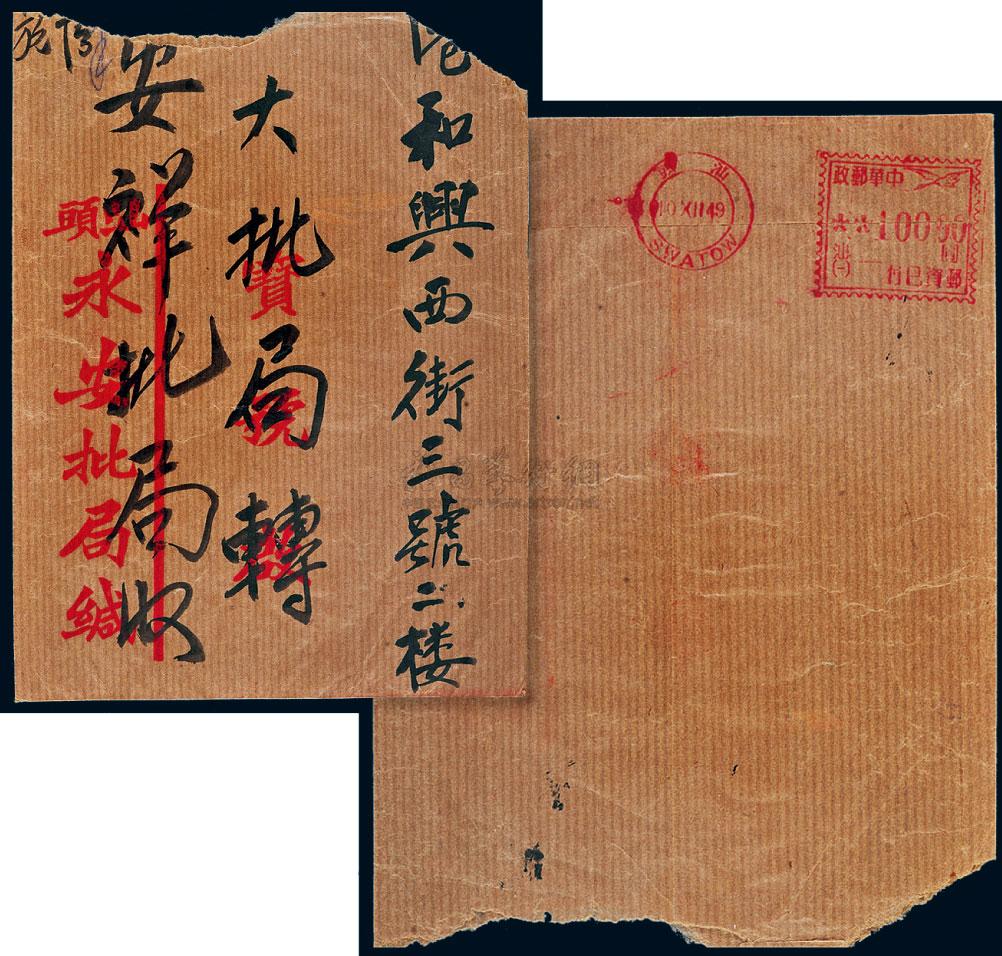 港和興西街三號二楼
大批局轉
安祥批局收
寶號
汕頭永安批局緘
汕頭
10 XII 49
SWATOW
中華郵政
10000
圓
汕(一)
郵資已付